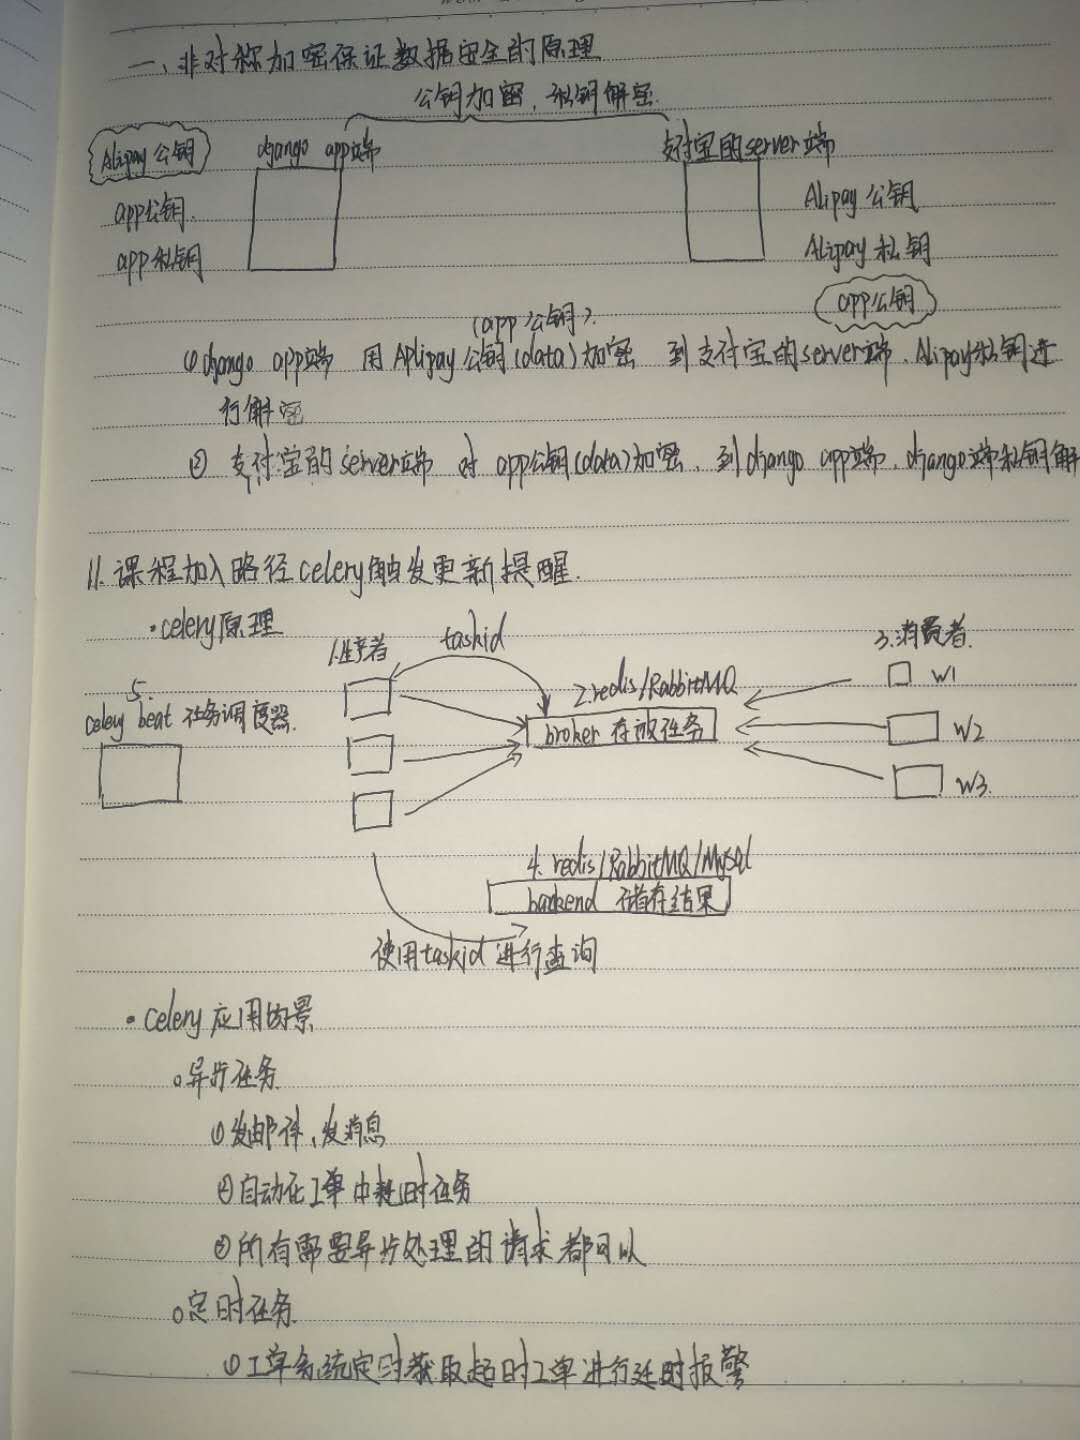 一、非对称加密保证数据安全的原理
公钥加密，私钥解密
Alipay公钥 django app端 支付宝的server端
app公钥 Alipay公钥
app私钥 Alipay私钥
app公钥
(app公钥)
①django app端 用Aplipay公钥(data)加密 到支付宝的server端，Alipay私钥进
行解密
② 支付宝的server端 对 app公钥(data)加密，到django app端，django端私钥解
11.课程加入路径celery触发更新提醒.
·celery原理
1.生产者 taskid 3.消费者
5. 2.redis/RabbitMQ W1
celey beat 任务调度器 broker 存放任务 W2
W3
4. redis/RabbitMQ/Mysql
backend 储存结果
使用taskid 进行查询
·celery应用场景
。异步任务
①发邮件、发消息
②自动化工单中耗时任务
③所有需要异步处理的请求都可以
。定时任务
①工单系统定时获取超时工单进行延时报警